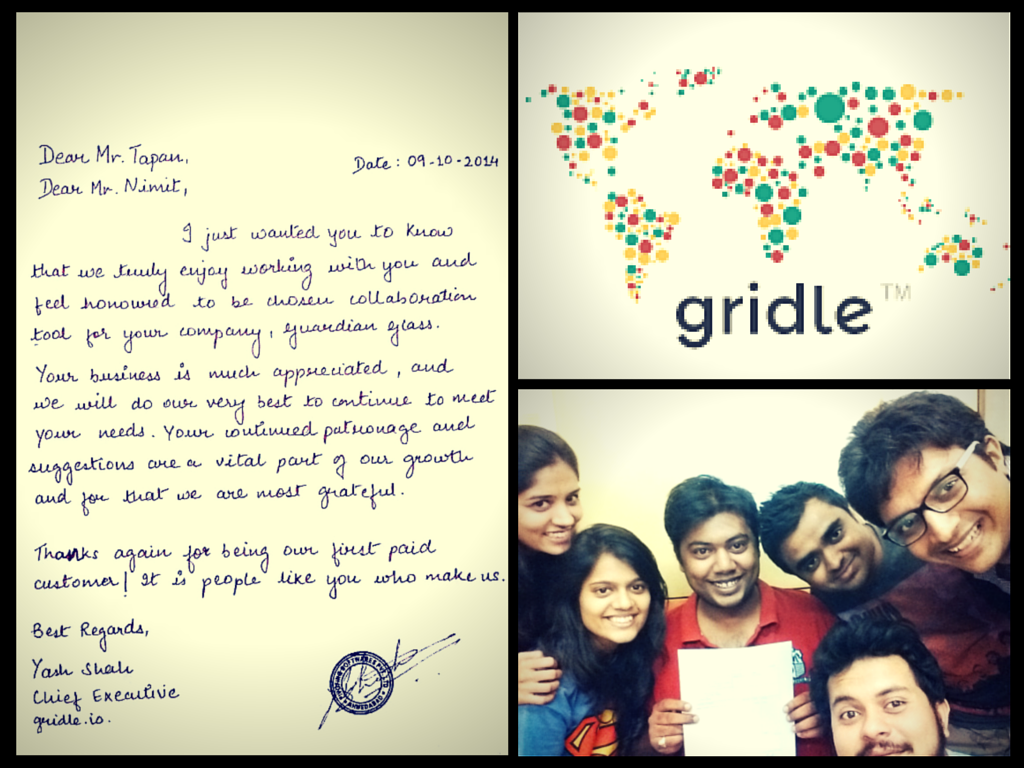 Dear Mr. Tapan,
Date : 09-10-2014
Dear Mr. Nimit,
I just wanted you to know
that we truly enjoy working with you and
feel honoured to be chosen collaboration
tool for your company, guardian glass.
Your business is much appreciated, and
we will do our very best to continue to meet
your needs. Your continued patronage and
suggestions are a vital part of our growth
and for that we are most grateful.
Thanks again for being our first paid
customer! It is people like you who make us.
Best Regards,
Yash Shah
Chief Executive
gridle.io.
AHMEDABAD
gridle TM